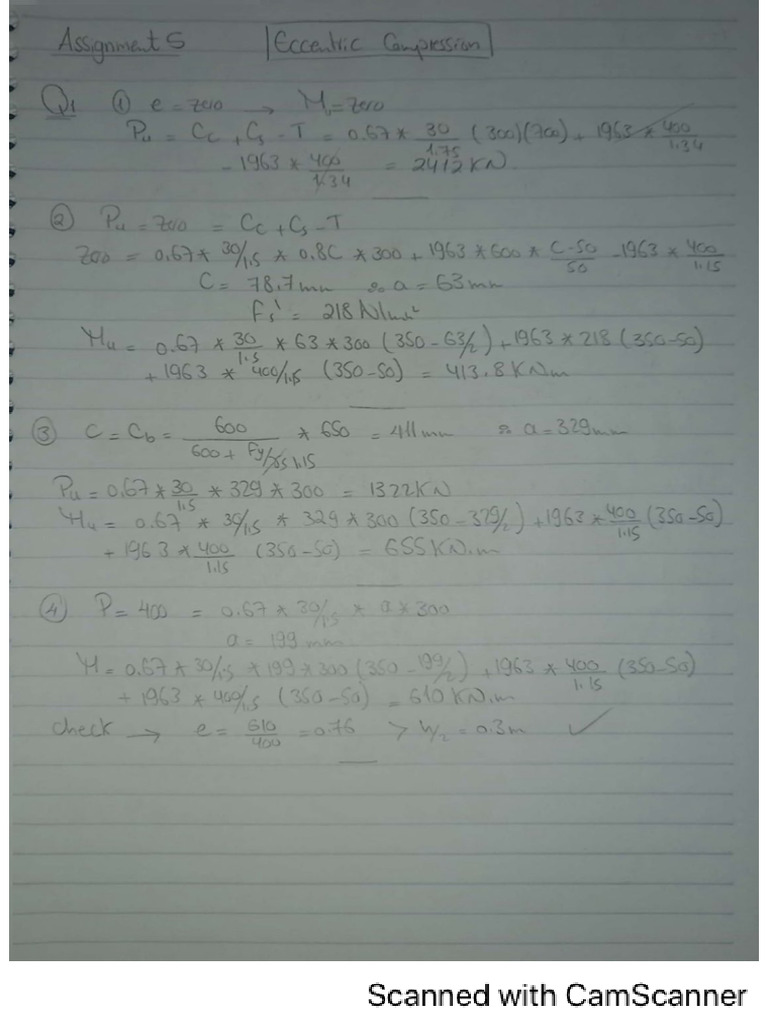 Assignment 5 Eccentric Compression
Q1 ① e = zero → Mu = zero
Pu = Cc + Cs - T = 0.67 * 30/1.75 (300)(700) + 1963 * 400/1.34
- 1963 * 400/1.34 = 2412 KN
② Pu = zero = Cc + Cs - T
Zero = 0.67 * 30/1.5 * 0.8C * 300 + 1963 * 600 * C-50/50 - 1963 * 400/1.15
C = 78.7 mm ∴ a = 63 mm
Fs' = 218 N/mm²
Mu = 0.67 * 30/1.5 * 63 * 300 (350 - 63/2) + 1963 * 218 (350-50)
+ 1963 * 400/1.15 (350-50) = 413.8 KNm
③ C = Cb = 600/600 + Fy/1.15 * 650 = 411 mm ∴ a = 329 mm
Pu = 0.67 * 30/1.5 * 329 * 300 = 1322 KN
Mu = 0.67 * 30/1.5 * 329 * 300 (350 - 329/2) + 1963 * 400/1.15 (350-50)
+ 1963 * 400/1.15 (350-50) = 655 KN.m
④ P = 400 = 0.67 * 30/1.5 * a * 300
a = 199 mm
M = 0.67 * 30/1.5 * 199 * 300 (350 - 199/2) + 1963 * 400/1.15 (350-50)
+ 1963 * 400/1.5 (350-50) = 610 KN.m
Check → e = 610/400 = 0.76 > h/2 = 0.3m ✓
Scanned with CamScanner